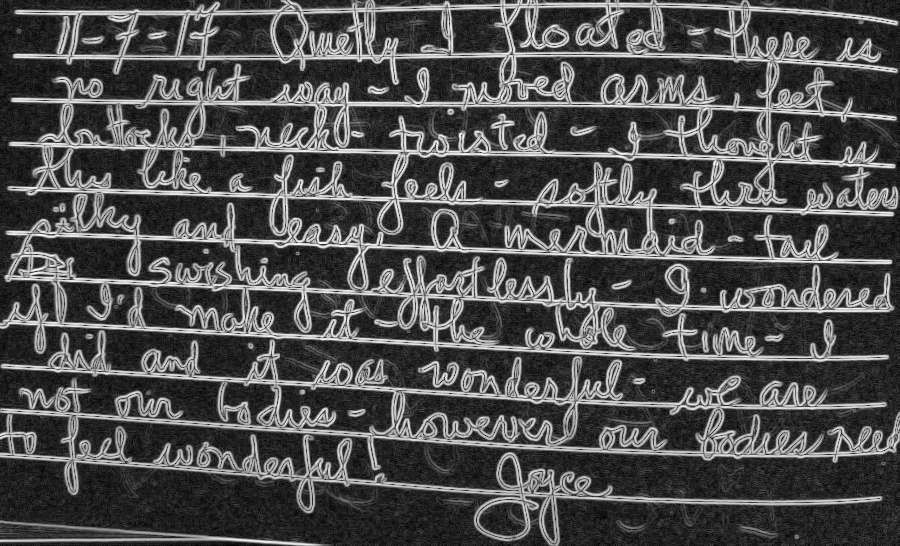 11-7-17 Quietly I floated - there is
no right way - I moved arms, feet,
buttocks, neck - twisted - I thought is
this like a fish feels - softly thru waters
silky and easy. A mermaid - tail
swishing effortlessly - I wondered
if I'd make it - the whole time - I
did and it was wonderful - we are
not our bodies - however our bodies need
to feel wonderful!
Joyce